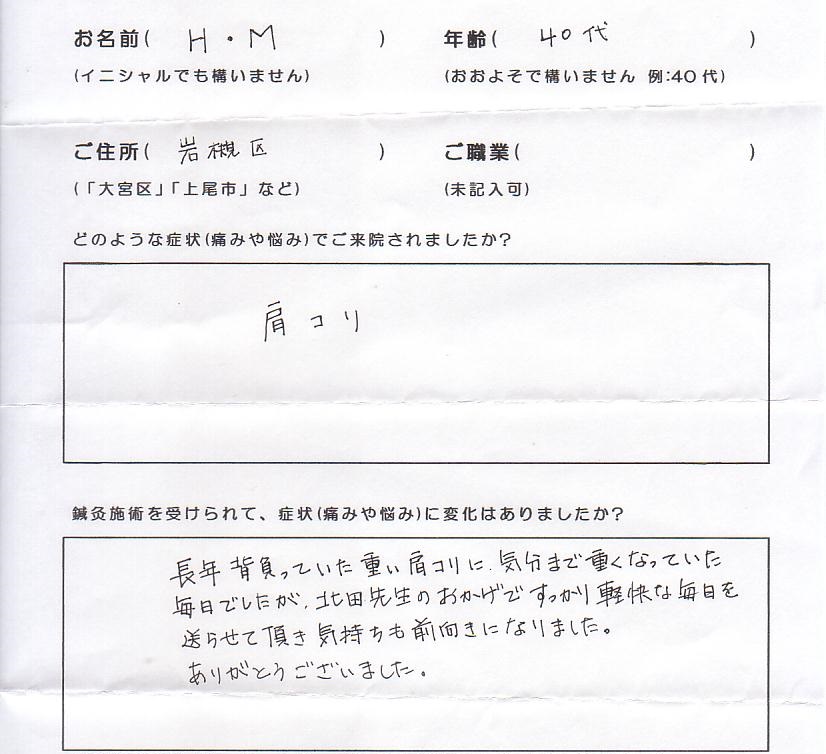 お名前( H・M ) 年齢( 40代 )
(イニシャルでも構いません) (おおよそで構いません 例:40代)
ご住所( 岩槻区 ) ご職業( )
(「大宮区」「上尾市」など) (未記入可)
どのような症状(痛みや悩み)でご来院されましたか?
肩コリ
鍼灸施術を受けられて、症状(痛みや悩み)に変化はありましたか?
長年背負っていた重い肩コリに、気分まで重くなっていた
毎日でしたが、北田先生のおかげですっかり軽快な毎日を
送らせて頂き気持ちも前向きになりました。
ありがとうございました。